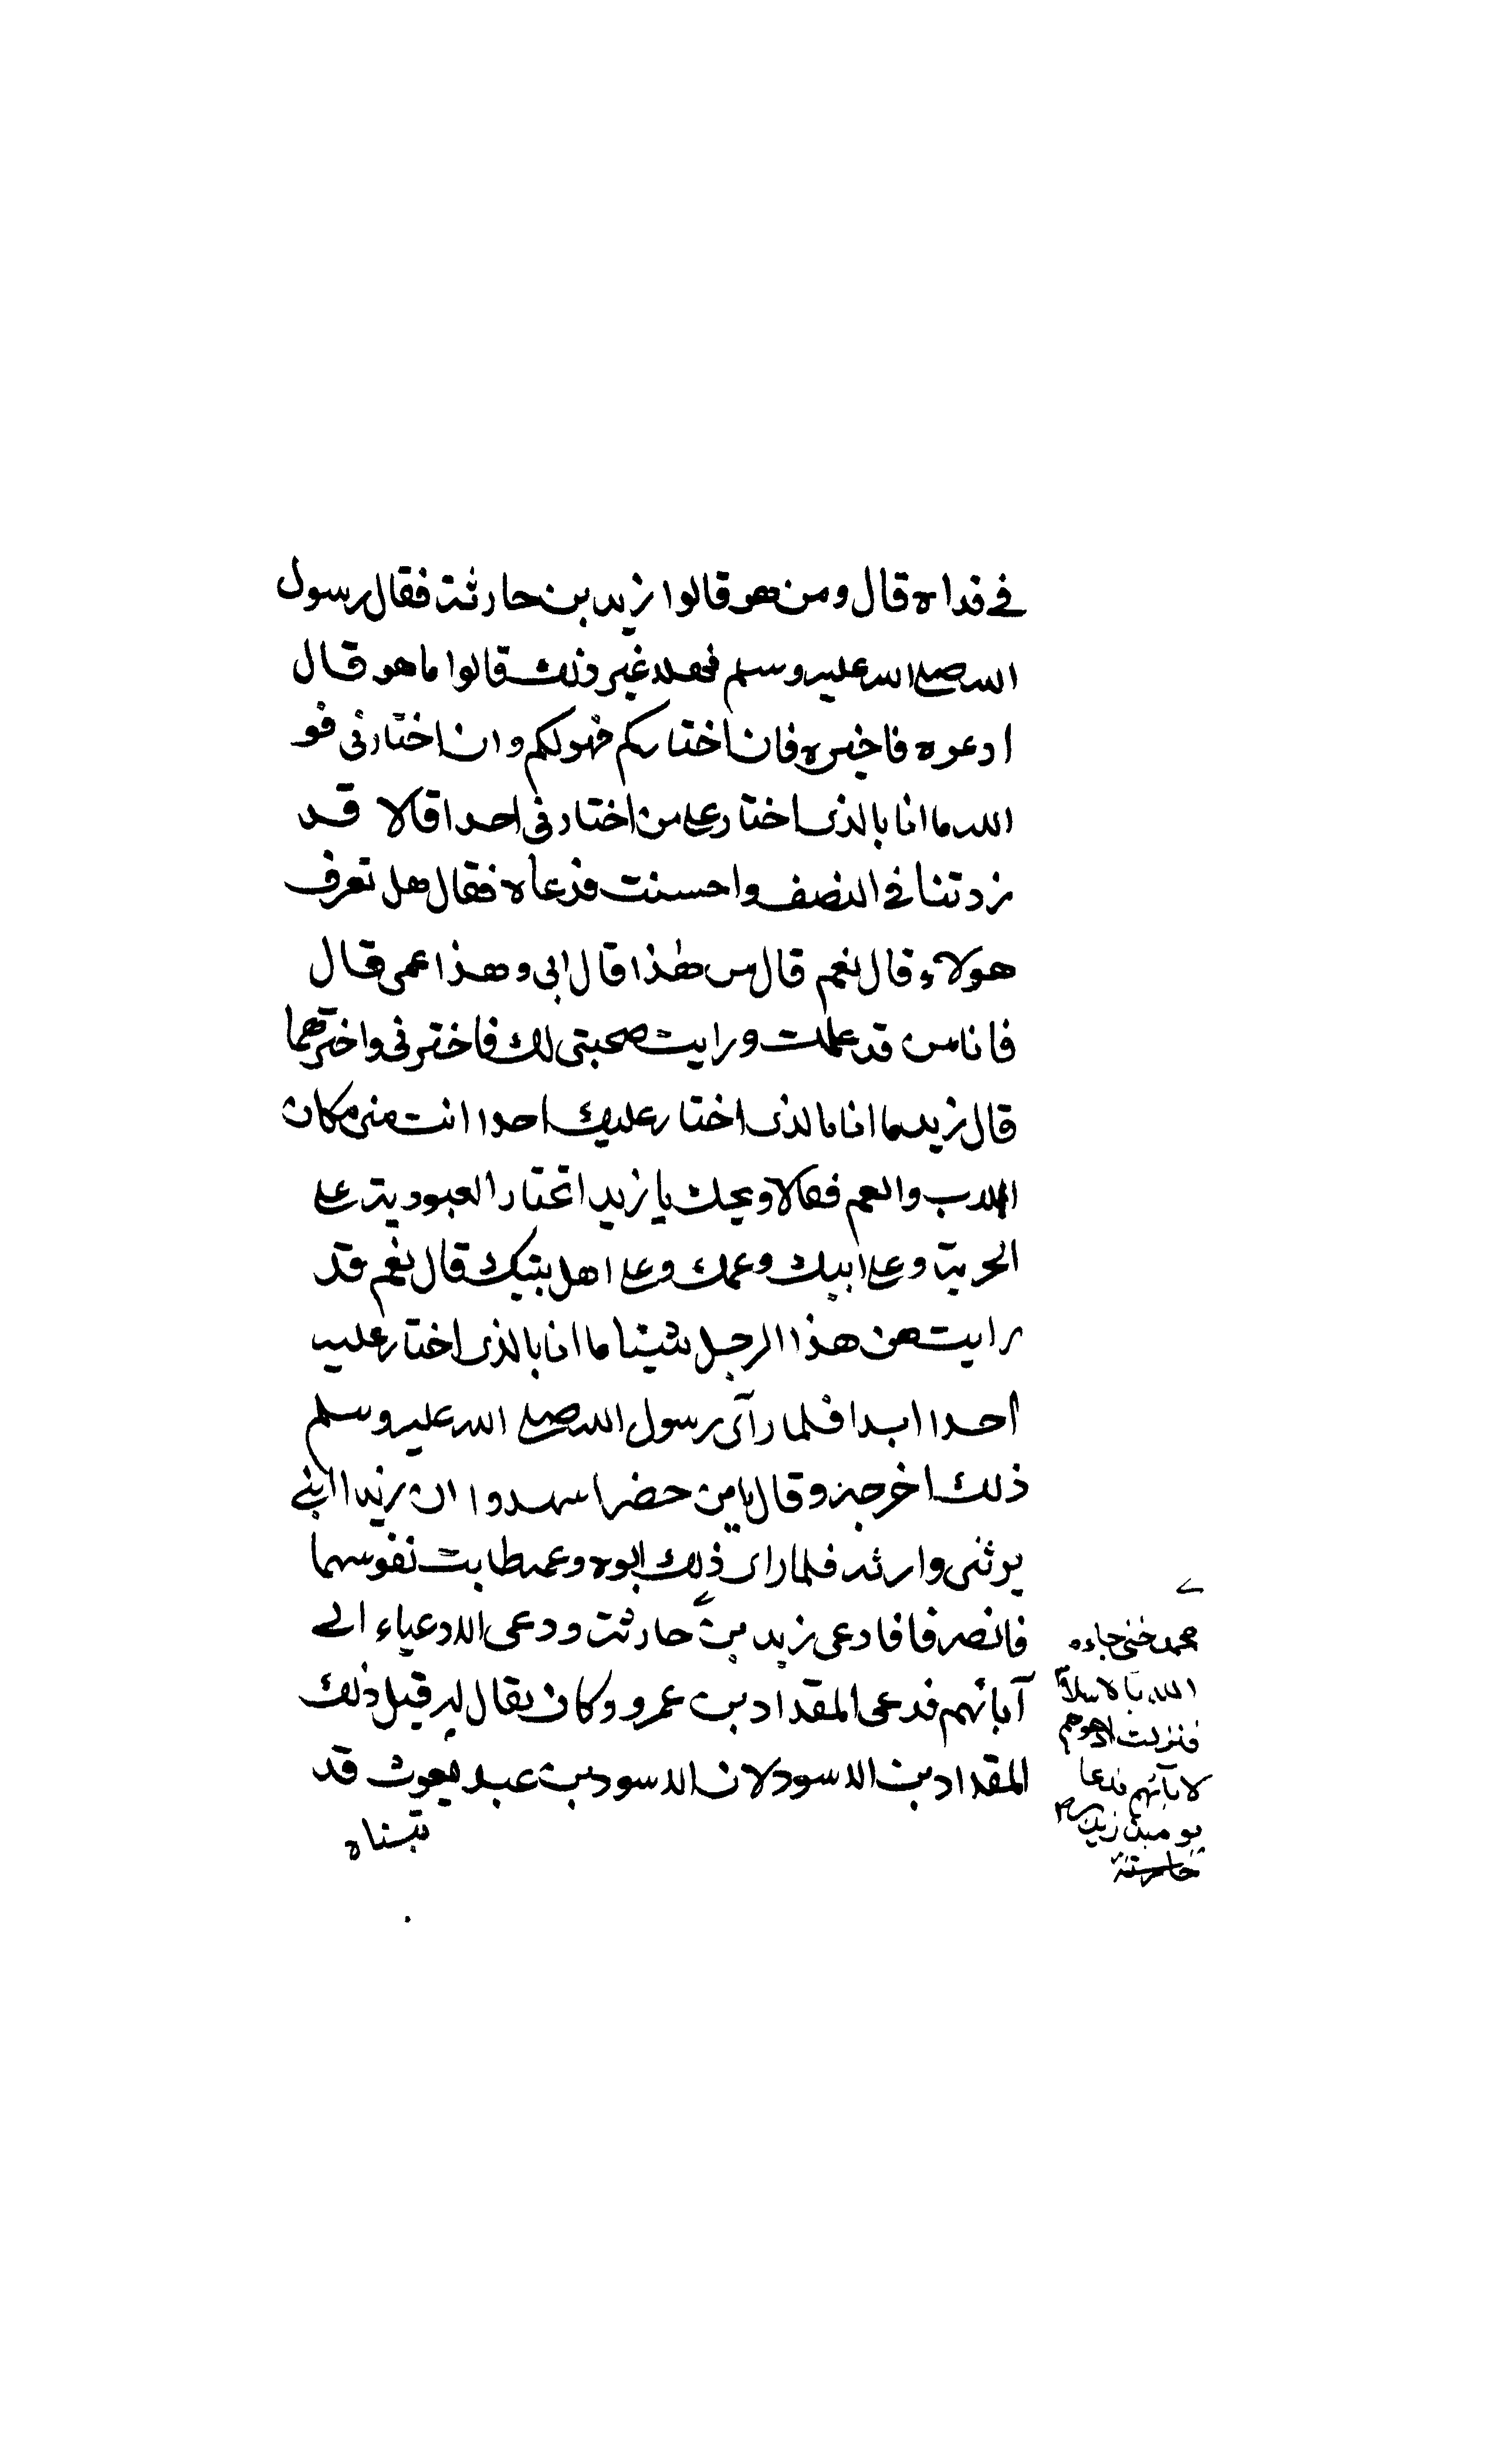 في فداه قال ومن هو قالوا زيد بن حارثة فقال رسول
الله صلى الله عليه وسلم فهلا غير ذلك قالوا ما هو قال
ادعوه فاخيره فان اختاركم فهو لكم وان اختارني فو
الله ما انا بالذى اختار على من اختارني احدا قالا قد
زدتنا في النصف واحسنت فدعاه فقال هل تعرف
هولاء قال نعم قال من هذا قال ابى وهذا عمى قال
فانا من قد علمت ورايت صحبتى لك فاخترنى واخترهما
قال زيد ما انا بالذى اختار عليك احدا انت منى مكان
الاب والعم فقالا ويحك يا زيد اتختار العبودية على
الحرية وعلى ابيك وعمك وعلى اهل بيتك قال نعم قد
رايت من هذا الرجل شيئا ما انا بالذى اختار عليه
أحدا ابدا فلما رآى رسول الله صلى الله عليه وسلم
ذلك اخرجه وقال يا من حضر اسهدوا ان زيدا ابنى
يرثنى وارثه فلما راى ذلك ابوه وعمه طابت نفوسهما
فانصرفا فادعى زيد بن حارثة ودعى الادعياء الى
آبائهم فدعى المقداد بن عمرو وكان يقال له قبل ذلك
المقداد بن الاسود لان الاسود بن عبد يغوث قد
تبناه
محمد حتى جاءه
الله بالاسلام
فنزلت ادعوهم
لابآئهم فدعا
يومئذ زيد بن
حارثة